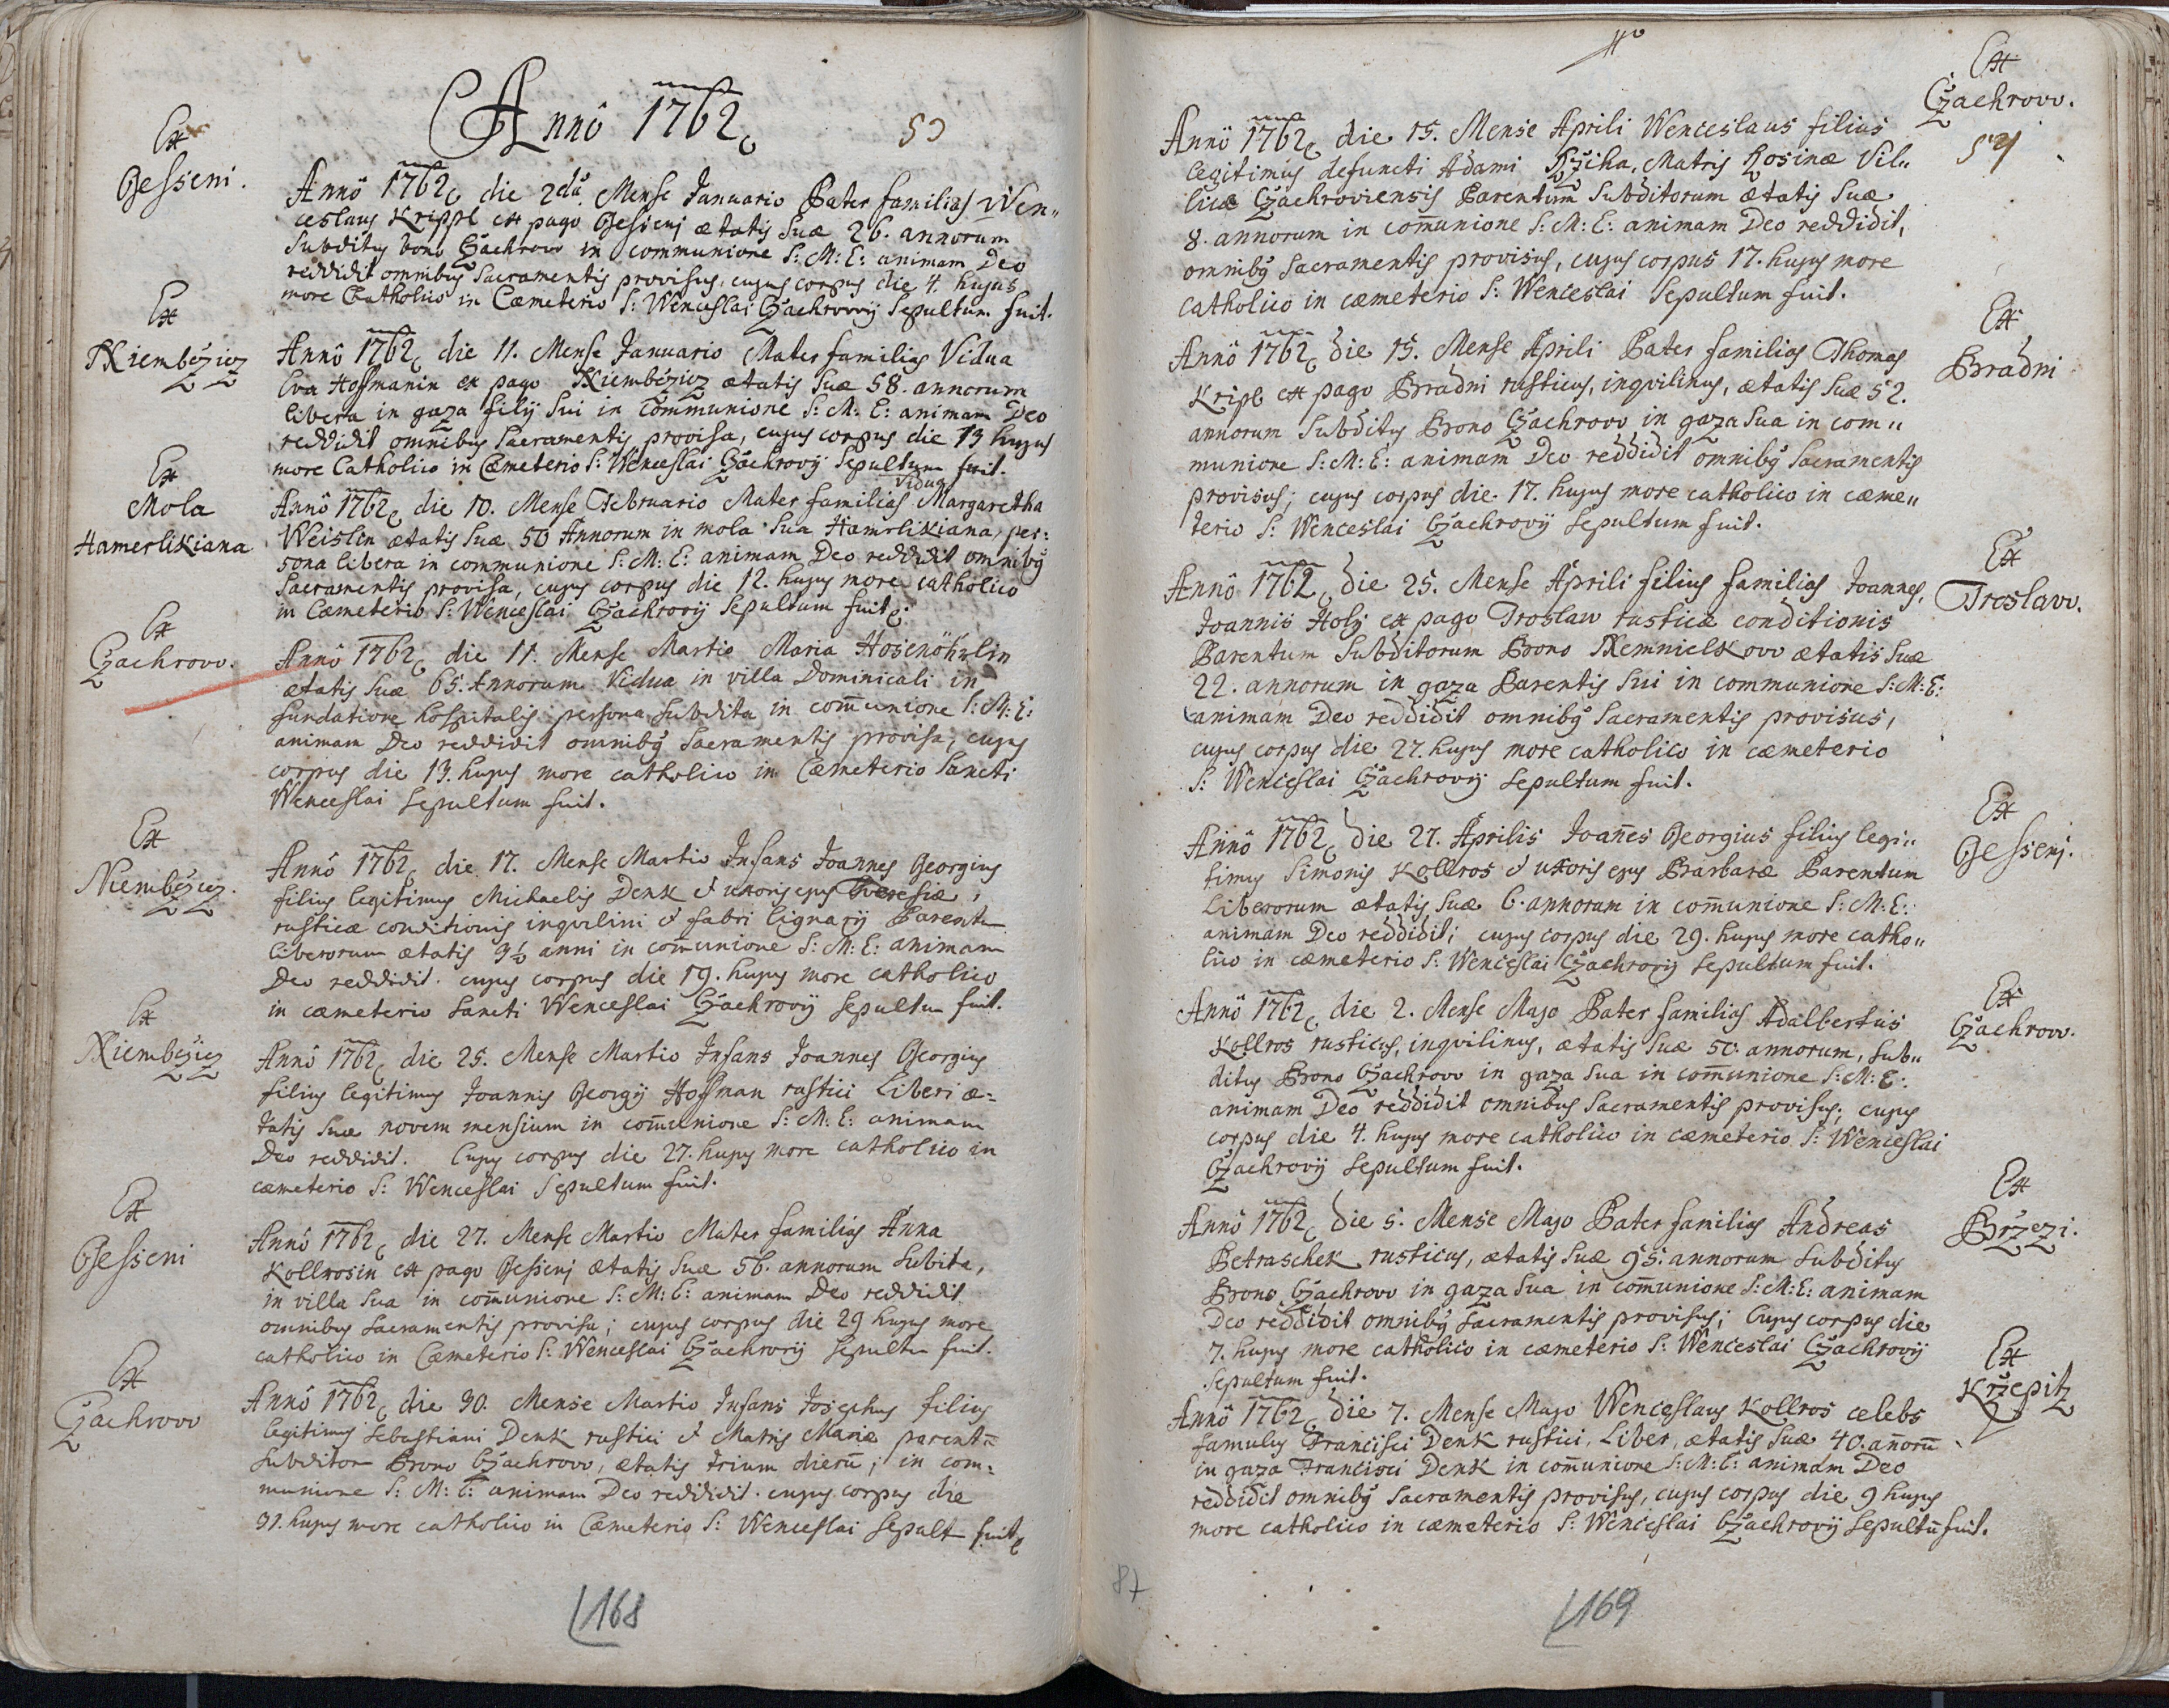 Annô 1762
53
Ex
Gesseni.
Annô 1762 die 2dâ Mense Januario Pater familias Wen„
ceslaus Krippl ex pago Gessenj ætatis Suæ 26. annorum
Subditus bono Czachrow in communione S: M: E: animam Deo
reddidit omnibus Sacramentis provisus, cujus corpus die 4. hujus
more Catholico in Cæmeterio S: Wenceslai Czachrovij Sepultum fuit.
Ex
Niembczicz
Annô 1762 die 11. Mense Januario Mater familias Vidua
Eva Hoffmanin ex pago Niembczicz ætatis Suæ 58. annorum
libera in gaza filij Sui in Communione S: M: E: animam Deo
reddidit omnibus Sacramentis provisa, cujus corpus die 13 hujus
more Catholico in Cæmeterio S: Wenceslai Czachrovij Sepultum fuit.
Ex
Mola
Hamerlikiana
Vidua
Annô 1762 die 10. Mense Februario Mater familias Margaretha
Weislin ætatis Suæ 50 Annorum in mola Sua Hamrlikiana, per:
sona libera in communione S: M: E: animam Deo reddidit omnibq
Sacramentis provisa, cujus corpus die 12. hujus more catholico
in Cæmeterio S: Wenceslai Czachrovij Sepultum fuit.
Ex
Czachrow.
Annô 1762 die 11. Mense Martio Maria Hosenöhrlin
ætatis Suæ 65. Annorum Vidua in villa Dominicali in
fundatione hospitalis persona Subdita in com̄unione S: M: E:
animam Deo reddidit omnibq Sacramentis provisa; cujus
corpus die 13. hujus more catholico in Cæmeterio Sancti
Wenceslai Sepultum fuit.
Ex
Niembczicz.
Annô 1762 die 17. Mense Martio Infans Joannes Georgius
filius legitimus Michaelis Denk & uxoris ejus Theresiæ,
rusticæ conditionis inqvilini & fabri lignarij Parentu
liberorum ætatis 3½ anni in com̄unione S: M: E: animam
Deo reddidit. cujus corpus die 19. hujus more catholico
in cæmeterio Sancti Wenceslai Czachrovij Sepultum fuit.
Ex
Niembczicz
Annô 1762 die 25. Mense Martio Infans Joannes Georgius
filius legitimus Joannis Georgij Hoffman rustici Liberi æ=
tatis Suæ novem mensium in com̄unione S: M: E: animam
Deo reddidit. Cujus corpus die 27. hujus more catholico in
cæmeterio S: Wenceslai Sepultum fuit.
Ex
Gesseni
Annô 1762 die 27. Mense Martio Mater familias Anna
Kollrosin ex pago Gessenj ætatis Suæ 56. annorum Subita,
in villa Sua in com̄unione S: M: E: animam Deo reddidit
omnibus Sacramentis provisa; cujus corpus die 29 hujus more
catholico in Cæmeterio S: Wenceslai Czachrovij Sepultu fuit.
Ex
Czachrow
Annô 1762 die 30. Mense Martio Infans Josephus filius
legitimus Sebastiani Denk rustici & Matris Mariæ parentū
Subditor Brono Czachrow, ætatis trium dierū; in com=
munione S: M: E: animam Deo reddidit. cujus corpus die
31. hujus more catholico in Cæmeterio S: Wenceslai Sepult fuit
168
Ex
Czachrow.
54
Annô 1762 die 15. Mense Aprili Wenceslaus filius
legitimus defuncti Adami Rziha, Matris Rosinæ Vil„
licæ Czachroviensis Parentum Subditorum ætatis Suæ
8. annorum in com̄unione S: M: E: animam Deo reddidit,
omnibq Sacramentis provisus, cujus corpus 17. hujus more
catholico in cæmeterio S: Wenceslai Sepultum fuit.
Ex
Bradni
Annô 1762 die 15. Mense Aprili Pater familias Thomas
Kripl ex pago Bradni rusticus, inqvilinus, ætatis Suæ 52.
annorum Subditus Brono Czachrow in gaza Sua in com„
munione S: M: E: animam Deo reddidit omnibq Sacramentis
provisus; cujus corpus die. 17. hujus more catholico in cæme„
terio S: Wenceslai Czachrovij Sepultum fuit.
Ex
Treslaw.
Annô 1762 die 25. Mense Aprili filius familias Joannes,
Joannis Holy ex pago Troslaw rusticæ conditionis
Parentum Subditorum Brono Nemnielkow ætatis Suæ
22. annorum in gaza Parentis Sui in communione S: M: E:
animam Deo reddidit omnibq Sacramentis provisus,
cujus corpus die 27. hujus more catholico in cæmeterio
S: Wenceslai Czachrovij Sepultum fuit.
Ex
Gessenj.
Annô 1762 die 27. Aprilis Joan̄es Georgius filius legi„
timus Simonis Kollros & uxoris ejus Barbaræ Parentum
Liberorum ætatis Suæ 6. annorum in com̄unione S: M: E:
animam Deo reddidit; cujus corpus die 29. hujus more catho„
lico in cæmeterio S: Wenceslai Czachrovij Sepultum fuit.
Ex
Czachrow.
Annô 1762 die 2. Mense Majo Pater familias Adalbertus
Kollros rusticus, inqvilinus, ætatis Suæ 50. annorum, Sub„
ditus Brono Czachrow in gaza Sua in com̄unione S: M: E:
animam Deo reddidit omnibus Sacramentis provisus; cujus
corpus die 4. hujus more catholico in cæmeterio S: Wenceslai
Czachrovij Sepultum fuit.
Ex
Brzezi.
Annô 1762 die 5. Mense Majo Pater familias Andreas
Petraschek rusticus, ætatis Suæ 95. annorum Subditus
Brono Czachrow in gaza Sua in com̄unione S: M: E: animam
Deo reddidit omnibq Sacramentis provisus; Cujus corpus die
7. hujus more catholico in cæmeterio S: Wenceslai Czachrovij
Sepultum fuit.
Ex
Krzepitz
Annô 1762 die 7. Mense Majo Wenceslaus Kollros celebs
famulus Francisci Denk rustici, Liber, ætatis Suæ 40. an̄orū
in gaza Francisci Denk in com̄unione S: M: E: animam Deo
reddidit omnibq Sacramentis provisus, cujus corpus die 9 hujus
more catholico in cæmeterio S: Wenceslai Czachrovij Sepultū fuit.
87
169